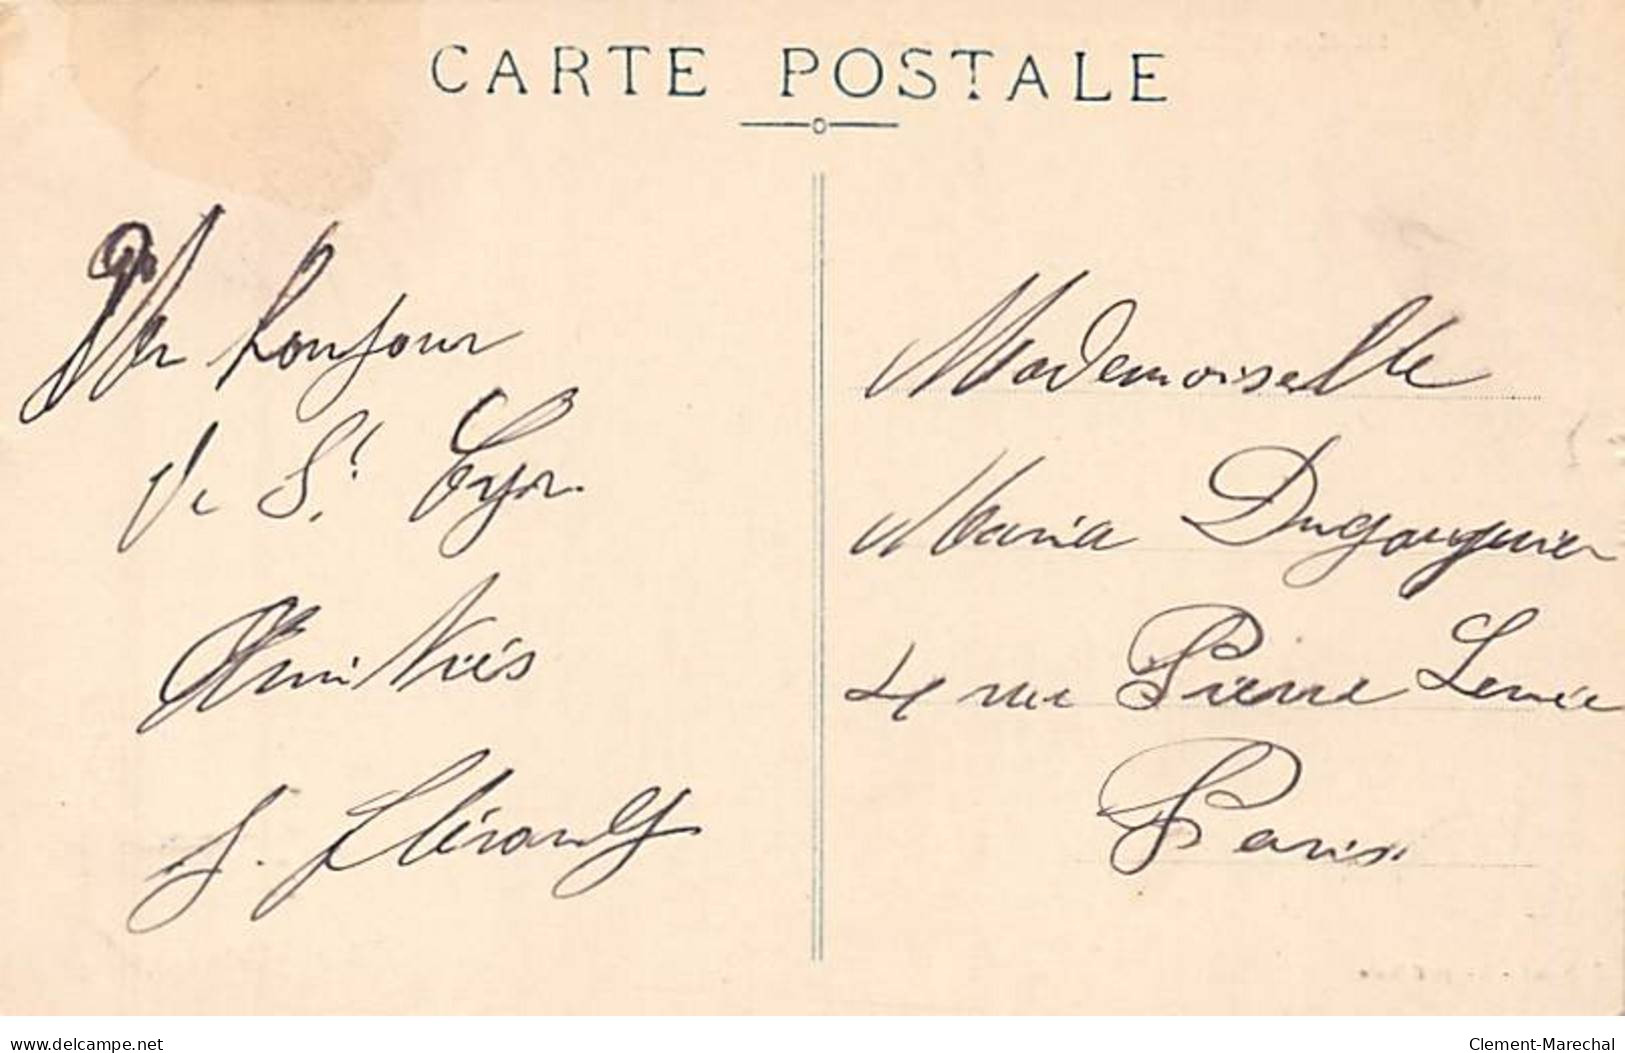 CARTE POSTALE
Un bonjour
de St Cyr
Amitiés
Mademoiselle
Maria
4 rue Pierre
Paris
www.delcampe.net
Clement-Marechal